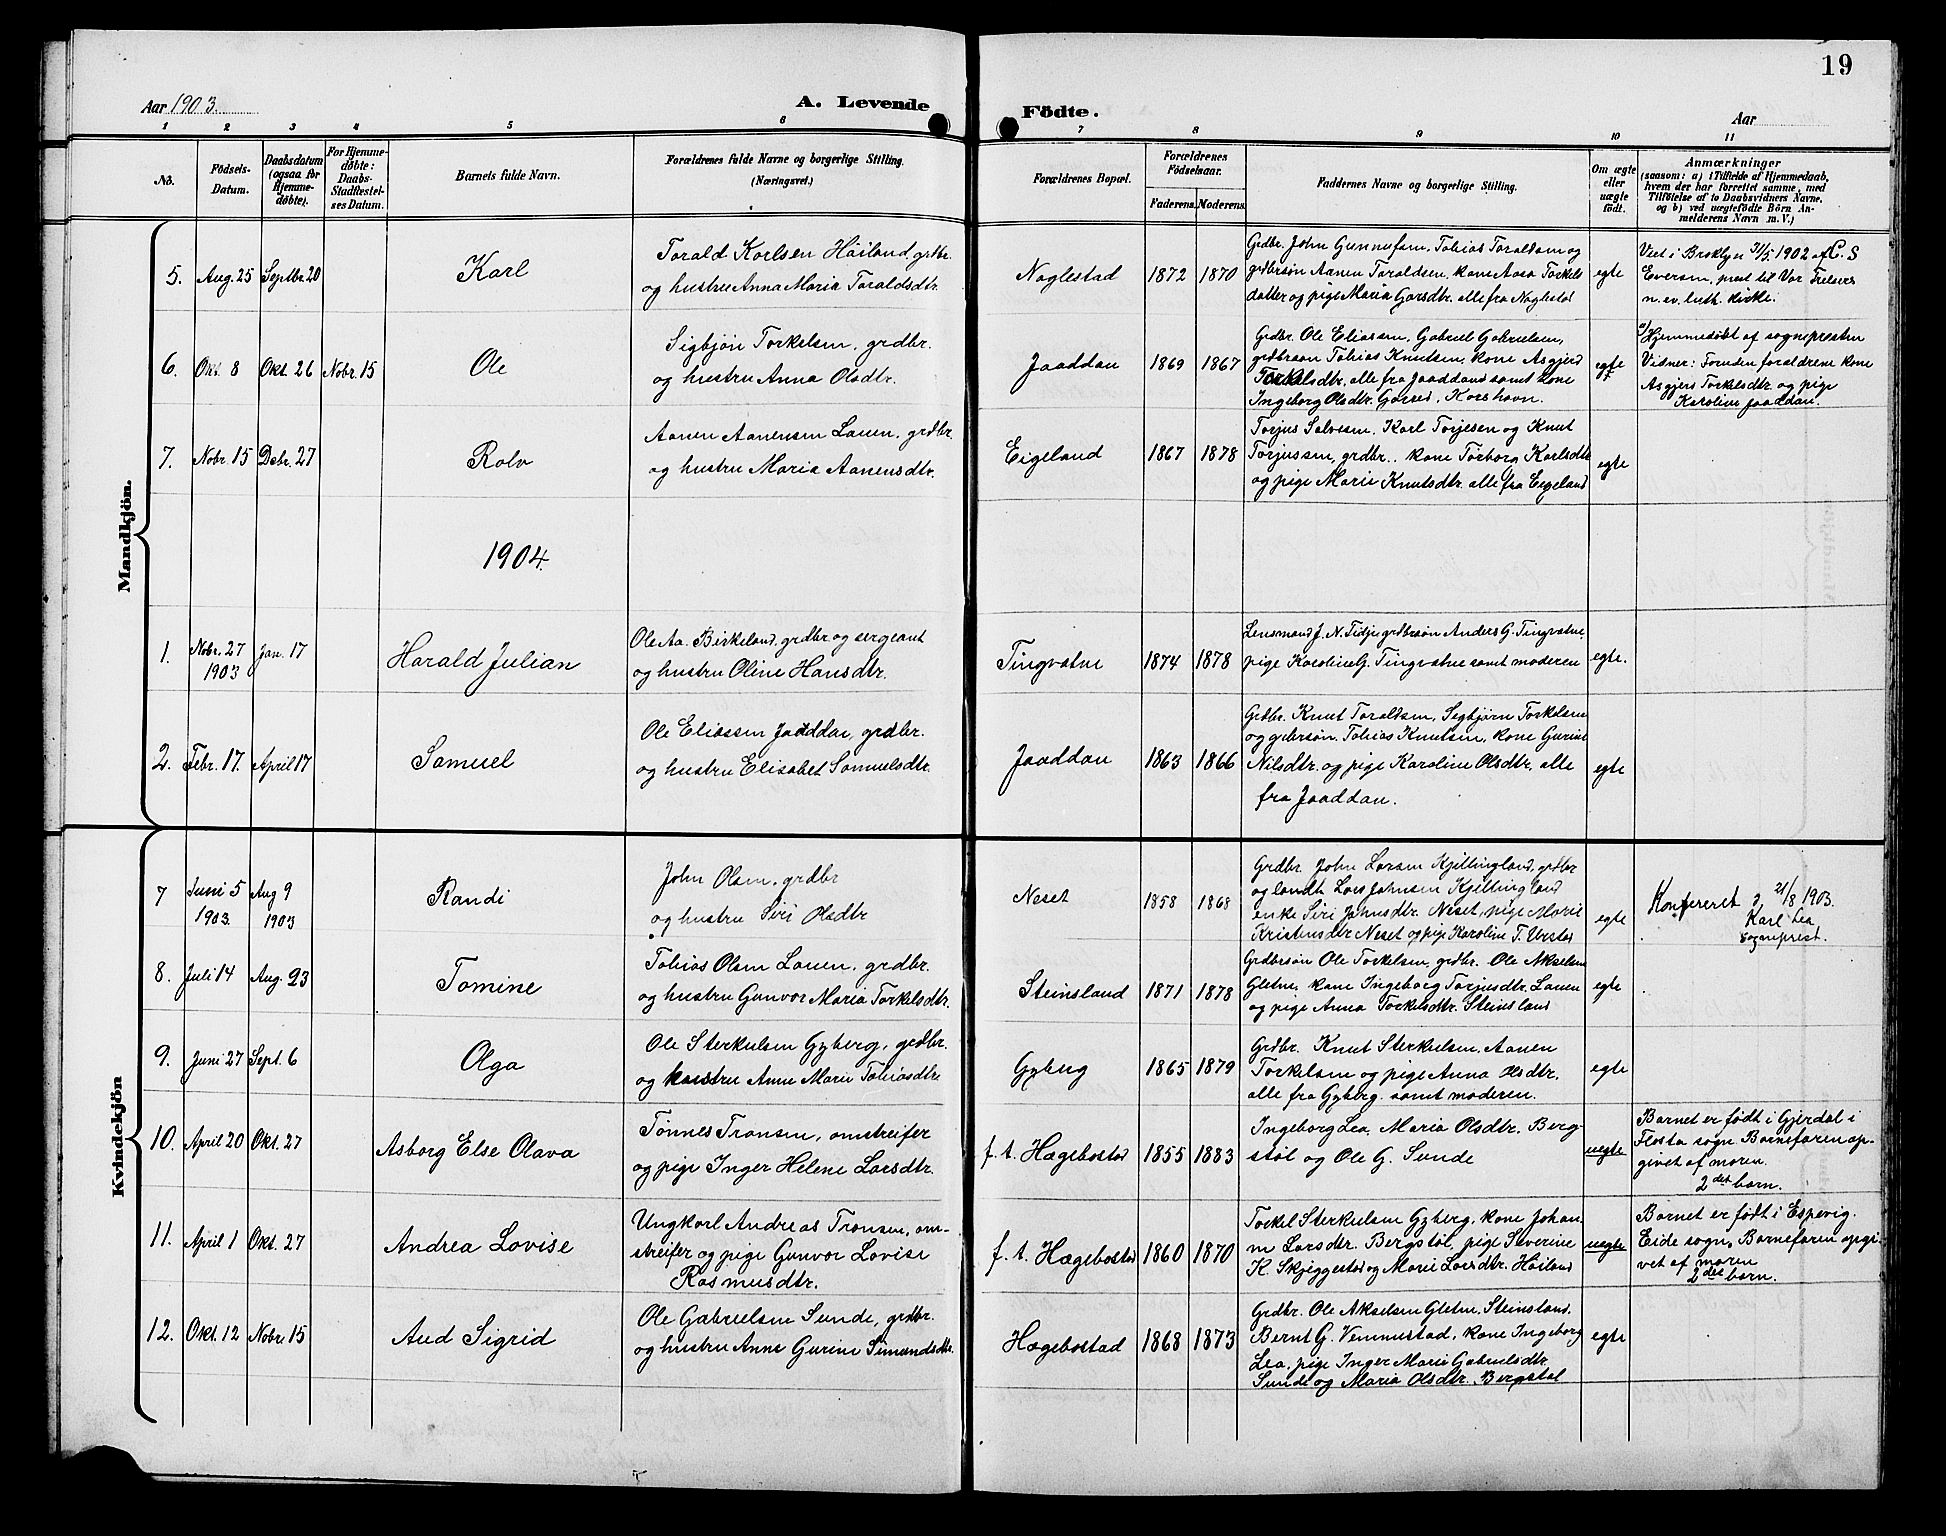 19
Aar 1903.
A. Levende
Födte.
Aar
1
2
3
4
5
6
7
8
9
10
11
No.
Födsels-
Datum.
Daabsdatum
(ogsaa for
Hjemme-
døbte).
For Hjemme-
døbte:
Daabs-
Stadfæstel-
ses Datum.
Barnets fulde Navn.
Forældrenes fulde Navne og borgerlige Stilling.
(Næringsvei.)
Forældrenes Bopæl.
Forældrenes
Födselsaar.
Faderens.
Moderens.
Faddernes Navne og borgerlige Stilling.
Om ægte
eller
uægte
født.
Anmærkninger
(saasom: a) i Tilfælde af Hjemmedaab,
hvem der har forrettet samme, med
Tilföielse af to Daabsvidners Navne,
og b) ved uægtefödte Börn An-
melderens Navn m. V.)
Mandkjön.
5.
Aug. 25
Septbr. 20
Karl
Torald Karlsen Höiland, grdbr.
og hustru Anna Maria Toraldsdtr.
Naglestad
1872
1870
Grdbr. John Gunnufsen, Tobias Toraldsen og
grdbrsøn Aanen Toraldsen, kone Aasa Torkels
datter og pige Maria Garsdtr. alle fra Naglestad
egte
Viet i Broklyn 31/5 1902 af C. S
Everson, prest til Vor Frelsers
n. ev. luth. kirke.
6.
Okt. 8
Okt. 26
Nobr. 15
Ole
Sigbjön Torkelsen, grdbr.
og hustru Anna Olsdtr.
Jaaddan
1869
1867
Grdbr. Ole Eliassen, Gabriel Gabrielsen,
grdbrsøn Tobias Knutsen, kone Asgjerd
Torkelsdtr, alle fra Jaaddand samt kone
Ingeborg Olsdtr. Gaased, Korshavn.
egte
a) Hjemmedøbt af sognepresten
Vidner: Foruden forældrene kone
Asgjers Torkelsdtr. og pige
Karoline Jaaddan.
7.
Nobr. 15
Debr. 27
Rolv
Aanen Aanensen Lauen, grdbr.
og hustru Maria Aanensdtr.
Eigeland
1867
1878
Torjus Salvesen, Karl Torjesen og Knut
Torjussen, grdbr., kone Torborg Karlsdtr
og pige Marie Knutsdtr. alle fra Eigeland
egte
1904.
1.
Nobr. 27
1903
Jan. 17
Harald Julian
Ole Aa. Birkeland, grdbr. og sergeant
og hustru Oline Hansdtr.
Tingvatne
1874
1878
Lensmand J. N. Tidje grdbrsøn Anders G. Tingvatne,
pige Karoline G. Tingvatne samt moderen
egte.
2.
Febr. 17.
April 17
Samuel
Ole Eliassen Jaaddan, grdbr.
og hustru Elisabet Samuelsdtr.
Jaaddan
1863
1866
Grdbr. Knut Toraldsen, Sigbjørn Torkelsen
og gdbrsøn. Tobias Knutsen, kone Gurine
Nilsdtr. og pige Karoline Olsdtr, alle
fra Jaaddan.
egte
Kvindekjön
7
Juni 5
1903.
Aug 9
1903
Randi
John Olsen, grdbr
og hustru Siri Olsdtr
Neset
1858
1868
Grdbr. John Larsen Kjellingland, grdbr
og landh Lars Johnsen Kjellingland
enke Siri Johnsdtr. Neset, pige Marie
Kristensdtr Neset og pige Karoline T. Urstad
egte
Konfereret 21/8 1903.
Karl Lea
sogneprest.
8.
Juli 14
Aug. 23
Tomine
Tobias Olsen Lauen, grdbr.
og hustru Gunvor Maria Torkelsdtr.
Steinsland
1871
1878
Grdbrsön Ole Torkelsen, grdbr. Ole Akselsen
Gletne, kone Ingeborg Torjusdtr. Lauen
og pige Anna Torkelsdtr. Steinsland
egte
9.
Juni 27
Sept. 6
Olga
Ole Sterkulsen Gyberg, grdbr.
og hustru Anne Marie Tobiasdtr
Gyberg
1865
1879
Grdbr. Knut Sterkulsen, Aanen
Torkelsen og pige Anna Olsdtr.
alle fra Gyberg, samt moderen.
egte
10.
April 20
Okt. 27
Asborg Else Olava
Tønnes Transen, omstreifer
og pige Inger Helene Larsdtr.
f. t. Hægebostad
1855
1883
Ingeborg Lea, Maria Olsdtr. Berg-
støl og Ole G. Sunde
uegte
Barnet er født i Gjerdal i
Flosta sogn. Barnefaren op-
givet af moren.
2det barn.
11.
April 1
Okt. 27
Andrea Lovise
Ungkarl Andreas Transen, om-
streifer og pige Gunvor Lovise
Rasmusdtr.
f. t. Hægebostad
1860
1870
Torkel Sterkulsen Gyberg, kone Johan
ne Larsdtr. Bergstøl, pige Severine
K. Skjeggestad og Marie Larsdtr. Höiland
uegte
Barnet er født i Espevig.
Eide sogn, Barnefaren opgi-
vet af moren
2det barn.
12.
Okt. 12
Nobr. 15
Aud Sigrid
Ole Gabrielsen Sunde, grdbr.
og hustru Anne Gurine Simundsdtr.
Hægebostad
1868
1873
Grdbr. Ole Akselsen Gletne, Steinsland,
Bernt G. Vemmestad, kone Ingeborg
Lea, pige Inger Marie Gabrielsdtr.
Sunde og Maria Olsdtr. Bergstøl
egte